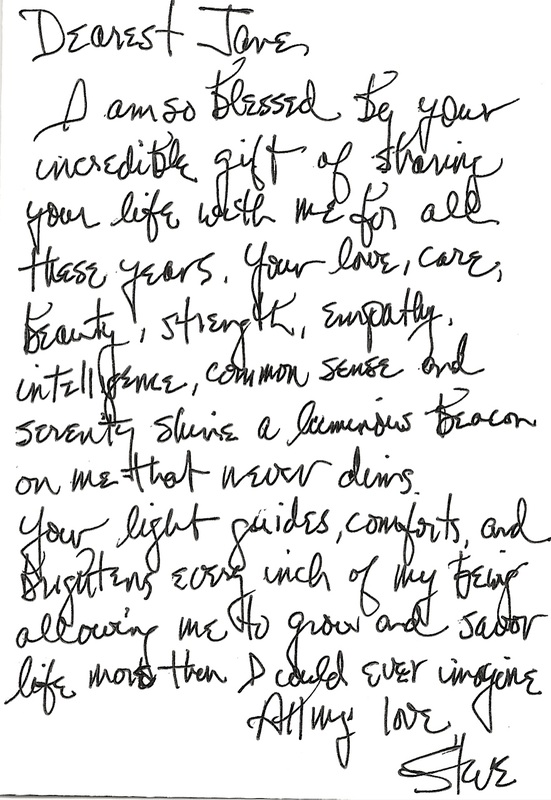 Dearest Jane,
I am so blessed by your
incredible gift of sharing
your life with me for all
these years. Your love, care,
beauty, strength, empathy,
intelligence, common sense and
serenity shine a luminous beacon
on me that never dims.
Your light guides, comforts, and
brightens every inch of my being
allowing me to grow and savor
life more than I could ever imagine
All my love
Steve